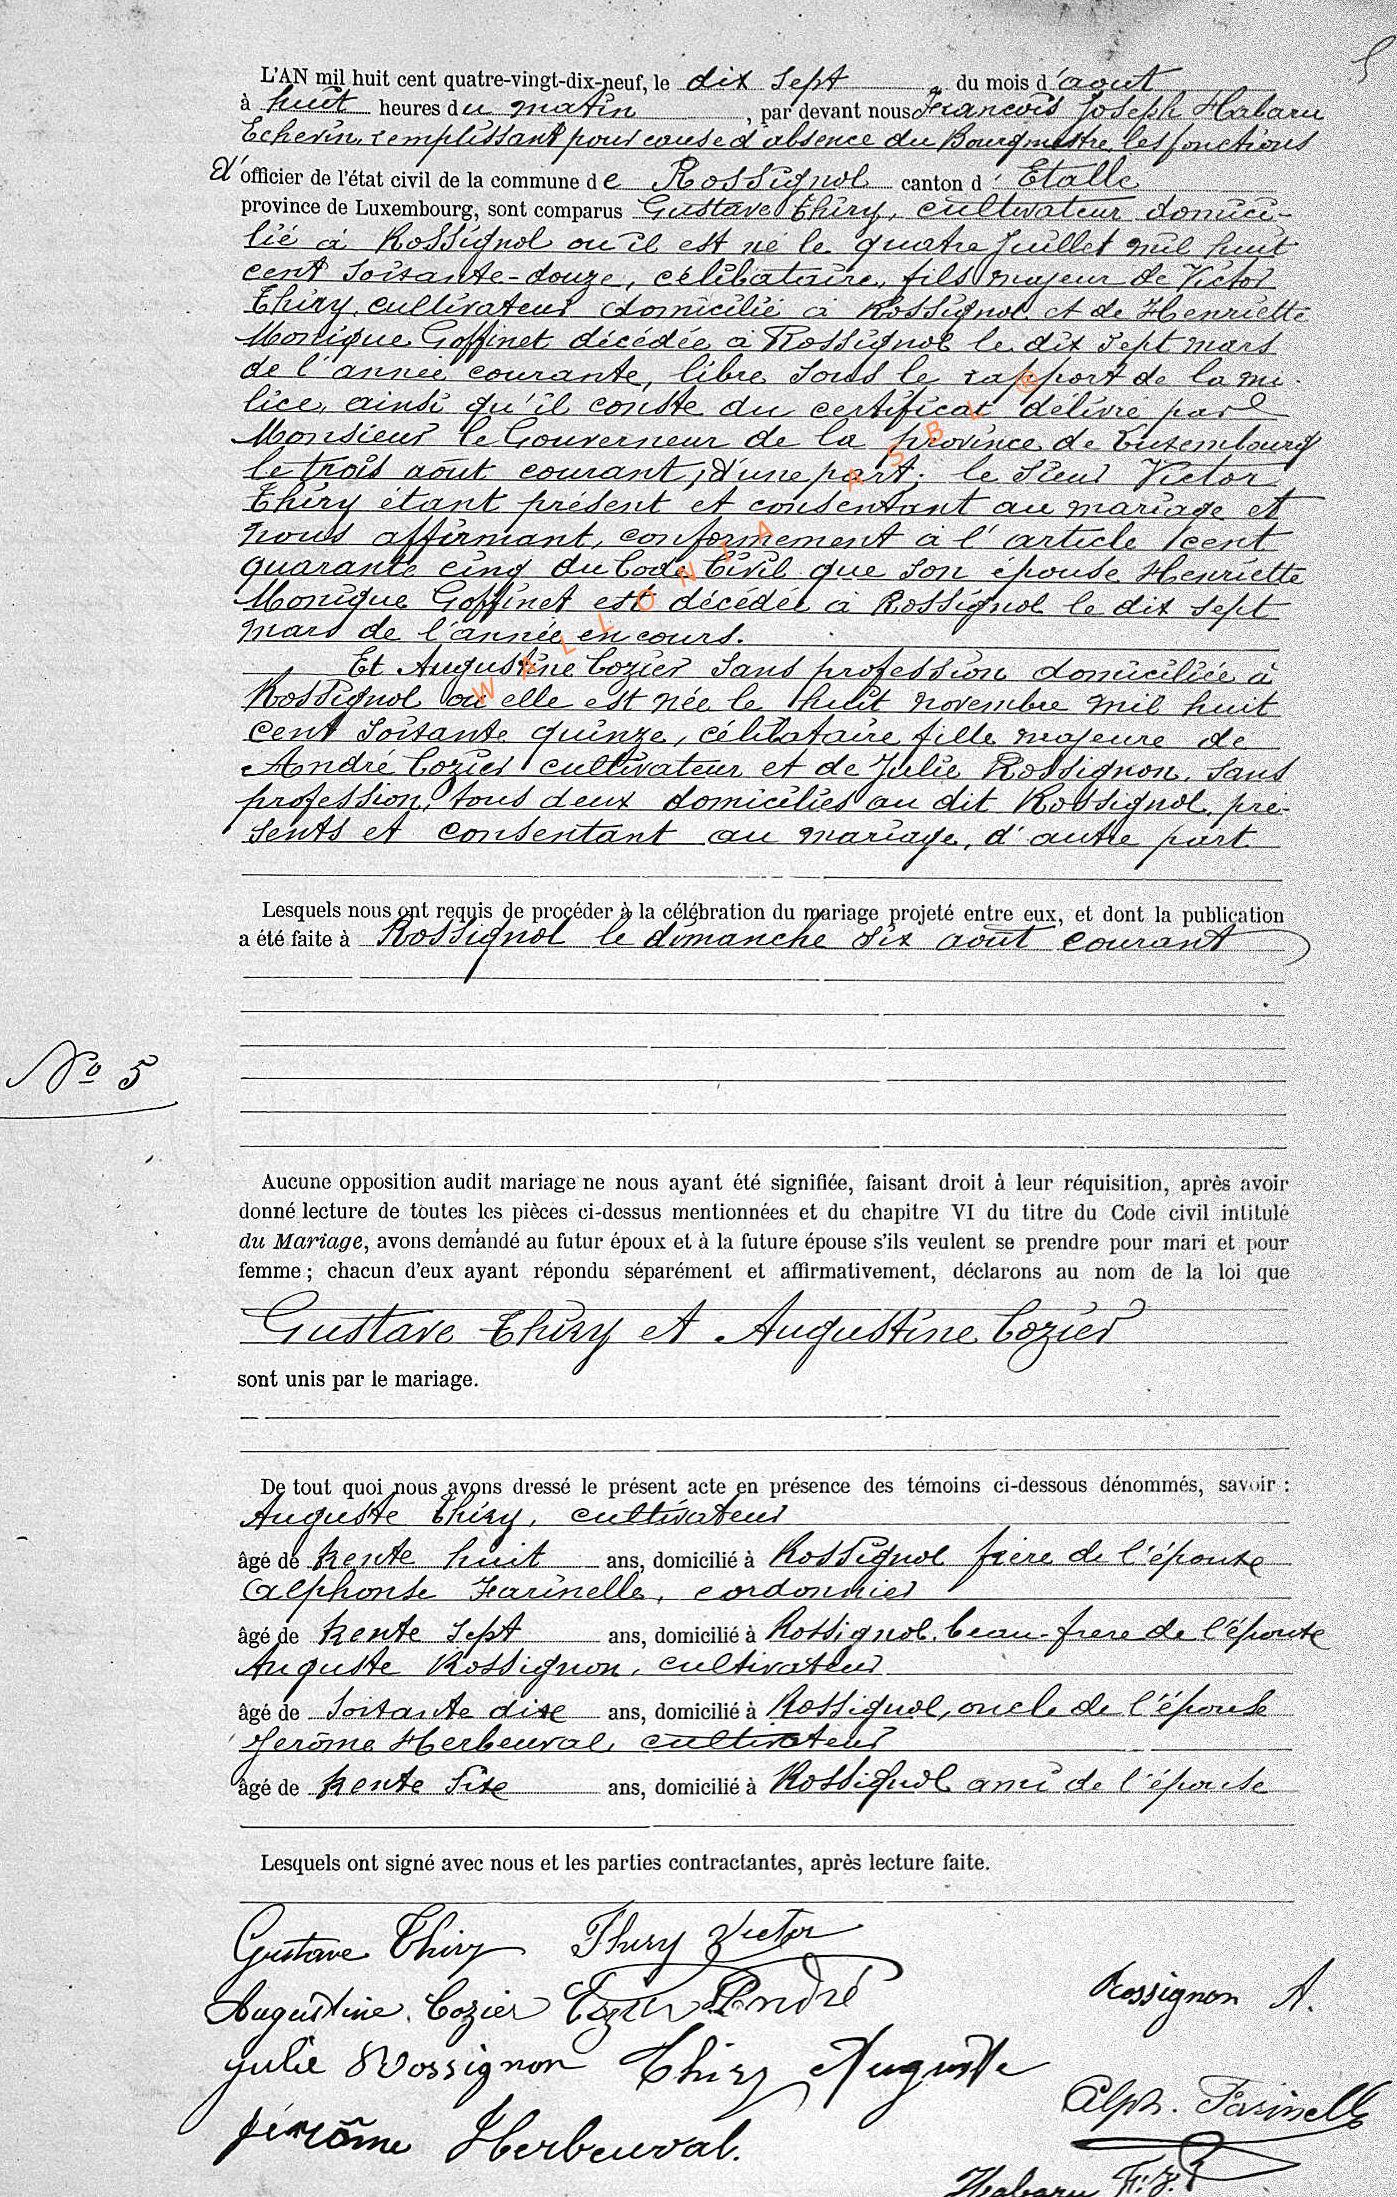 5
L'AN mil huit cent quatre-vingt-dix-neuf, le dix sept du mois d'aout
à huit heures du matin, par devant nous Francois Joseph Habaru
Echevin, remplissant pour cause d'absence du Bourgmestre, les fonctions
d'officier de l'état civil de la commune de Rossignol canton d'Etalle
province de Luxembourg, sont comparus Gustave Thiry, cultivateur domici-
lié à Rossignol où il est né le quatre Juillet mil huit
cent soixante-douze, célibataire, fils majeur de Victor
Thiry, cultivateur domicilié à Rossignol et de Henriette
Monique Goffinet décédée à Rossignol le dix sept mars
de l'année courante, libre sous le rapport de la mi-
lice, ainsi qu'il conste du certificat délivré par
Monsieur le Gouverneur de la province de Luxembourg
le trois août courant, d'une part; le sieur Victor
Thiry étant présent et consentant au mariage et
nous affirmant, conformement à l'article cent
quarante cinq du Code Civil que son épouse Henriette
Monique Goffinet est décédée à Rossignol le dix sept
mars de l'année en cours.
Et Augustine Cozier sans profession domiciliée à
Rossignol où elle est née le huit novembre mil huit
cent soixante quinze, célibataire fille majeure de
André Cozier cultivateur et de Julie Rossignon, sans
profession, tous deux domiciliés au dit Rossignol, pré-
sents et consentant au mariage, d'autre part
WALLONIA ASBL ®
Lesquels nous ont requis de procéder à la célébration du mariage projeté entre eux, et dont la publication
a été faite à Rossignol le dimanche six août courant
No 5
Aucune opposition audit mariage ne nous ayant été signifiée, faisant droit à leur réquisition, après avoir
donné lecture de toutes les pièces ci-dessus mentionnées et du chapitre VI du titre du Code civil intitulé
du Mariage, avons demandé au futur époux et à la future épouse s'ils veulent se prendre pour mari et pour
femme ; chacun d'eux ayant répondu séparément et affirmativement, déclarons au nom de la loi que
Gustave Thiry et Augustine Cozier
sont unis par le mariage.
De tout quoi nous avons dressé le présent acte en présence des témoins ci-dessous dénommés, savoir :
Auguste Thiry, cultivateur
âgé de trente huit ans, domicilié à Rossignol frère de l'époux
Alphonse Farinelle, cordonnier
âgé de trente sept ans, domicilié à Rossignol, beau-frere de l'épouse
Auguste Rossignon, cultivateur
âgé de soixante dixe ans, domicilié à Rossignol, oncle de l'épouse
Jerôme Herbeuval, cultivateur
âgé de trente sixe ans, domicilié à Rossignol ami de l'épouse
Lesquels ont signé avec nous et les parties contractantes, après lecture faite.
Gustave Thiry Thiry Victor
Augustine Cozier Cozier André Rossignon A.
Julie Rossignon Thiry Auguste
Alph. Farinelle
Jérôme Herbeuval.
Habaru F. J.